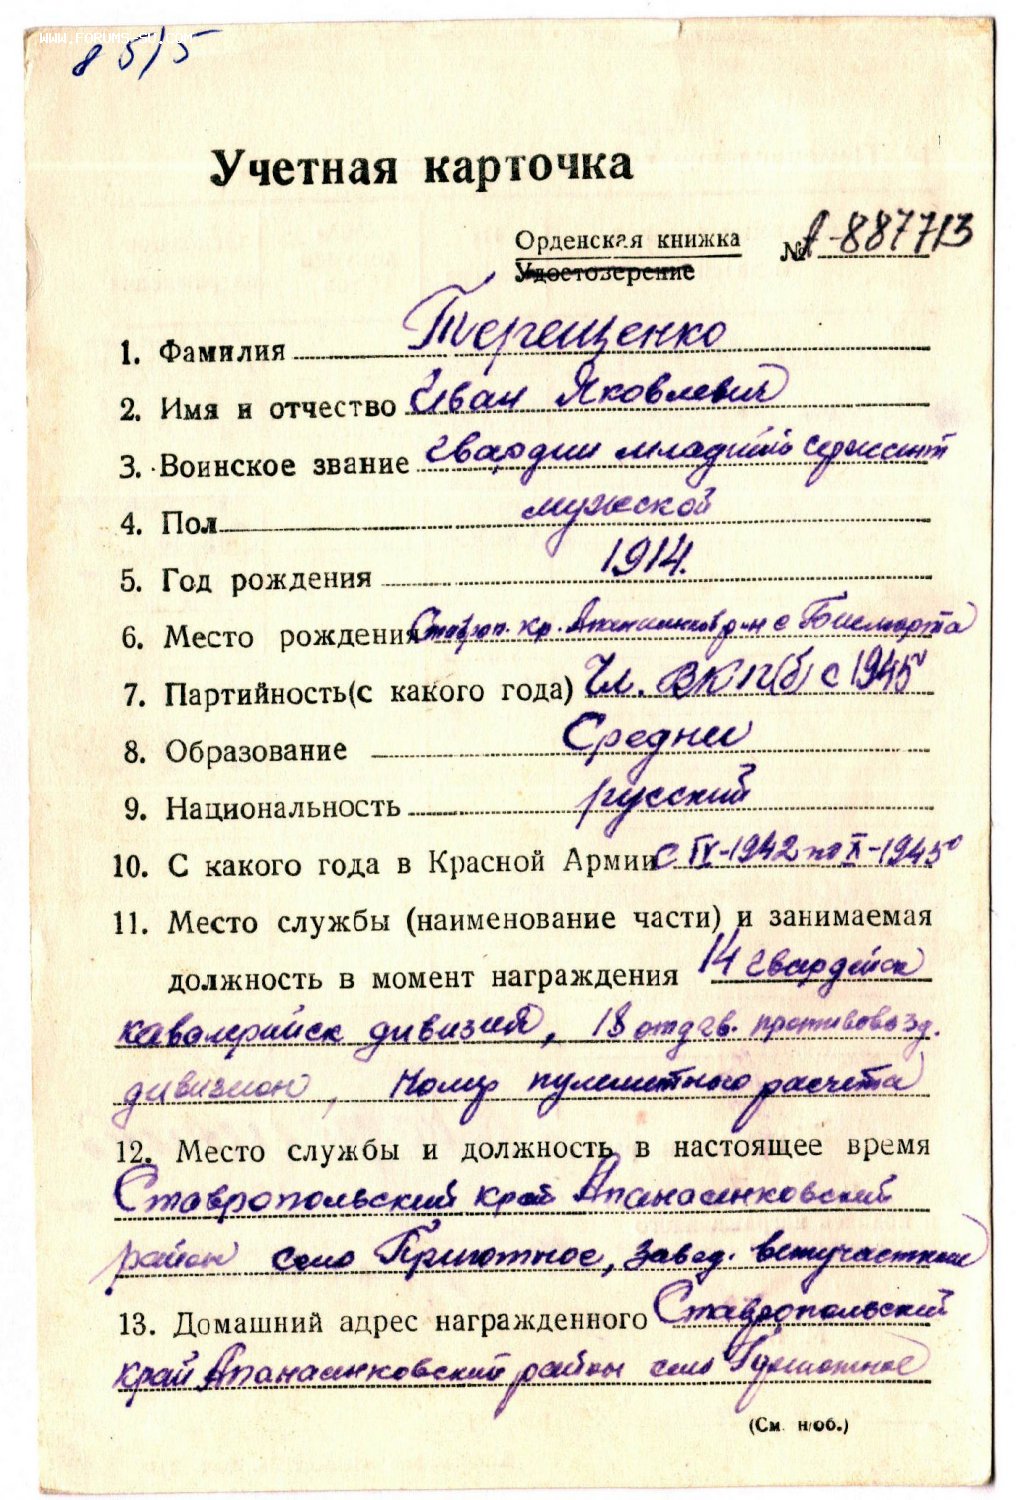 WWW.FORUMSSSR.COM
8 5/5
Учетная карточка
Орденская книжка № А-887713
Удостоверение
1. Фамилия Терещенко
2. Имя и отчество Иван Яковлевич
3. Воинское звание гвардии младший сержант
4. Пол мужской
5. Год рождения 1914.
6. Место рождения Ставроп. кр. Апанасенков р-н с
7. Партийность (с какого года) Чл. ВКП(б) с 1945
8. Образование Средне
9. Национальность русский
10. С какого года в Красной Армии с IV-1942 по X-1945
11. Место службы (наименование части) и занимаемая
должность в момент награждения 14 гвардейск
кавалерийск дивизия, 18 отд гв. противовозд.
дивизион, Номер пулеметного расчета
12. Место службы и должность в настоящее время
Ставропольский край Апанасенковский
район село Приютное, завед. ветучастком
13. Домашний адрес награжденного Ставропольский
край Апанасенковский район село Приютное
(См. н/об.)